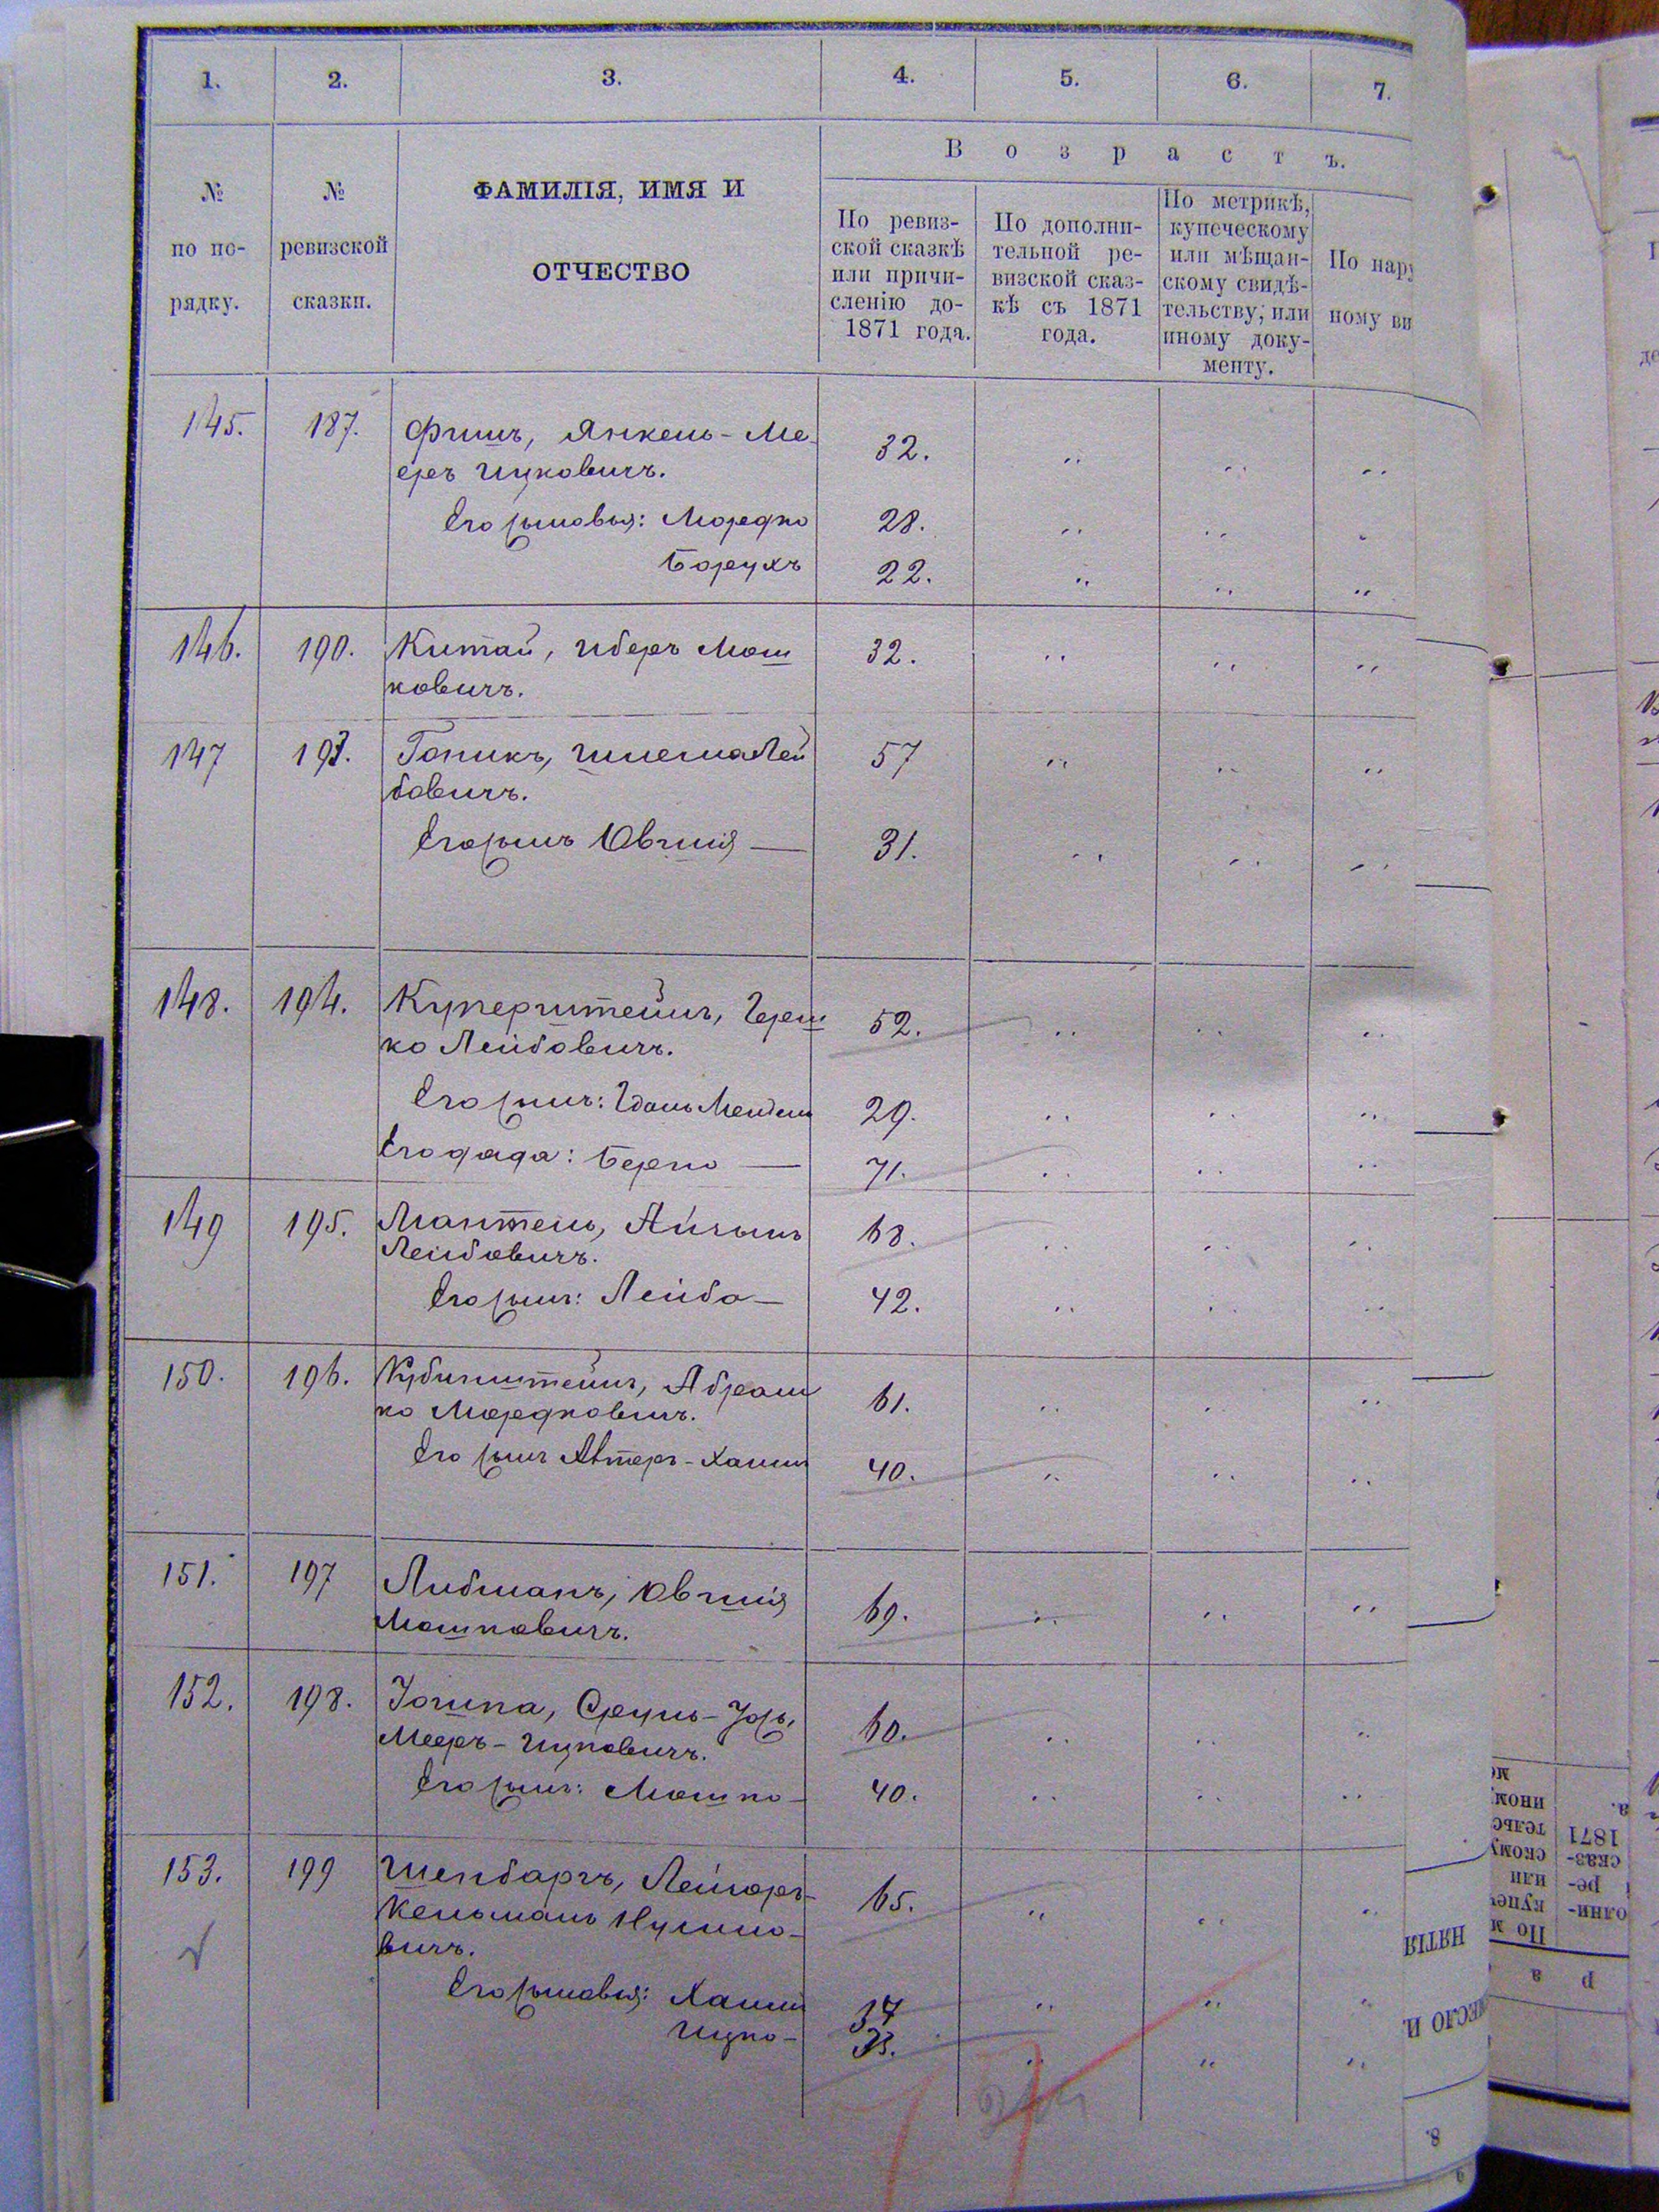 1. 2. 3. 4. 5. 6. 7.
В о з р а с т ъ.
№ по по-рядку.
№ ревизской сказки.
ФАМИЛІЯ, ИМЯ И
ОТЧЕСТВО
По ревиз-
ской сказкѣ
или причи-
сленію до-
1871 года.
По дополни-
тельной ре-
визской сказ-
кѣ съ 1871
года.
По метрикѣ,
купеческому
или мѣщан-
скому свидѣ-
тельству, или
иному доку-
менту.
По нару
ному ви
145. 187. Фишъ, Янкель-Ме- 32.
еръ Ицковичъ.
Его сыновья: Мордко 28.
Борухъ 22.
146. 190. Китай, Иберъ Мош 32.
ковичъ.
147 193. Гопикъ, Шлема Лей 57
бовичъ.
Его сынъ Овшія — 31.
148. 194. Куперштейнъ, Герш 52.
ко Лейбовичъ.
Его сынъ: Мендель 29.
Его дядя: Берко — 71.
149 195. Мантель, 68.
Лейбовичъ.
Его сынъ: Лейба — 42.
150. 196. Рубинштейнъ, Абрам 61.
ко Мордковичъ.
Его сынъ Хаимъ 40.
151. 197 Либманъ, Овшія 69.
Мошковичъ.
152. 198. Сруль- 60.
Мееръ-Ицковичъ.
Его сынъ: Мошко — 40.
153. 199 Шенбаргъ, Лейзеръ- 65.
Кельманъ Нухимо-
вичъ.
Его сыновья: Хаимъ 34
Ицко — 23.
НЯТІЯ
МЕСЛО И
8.